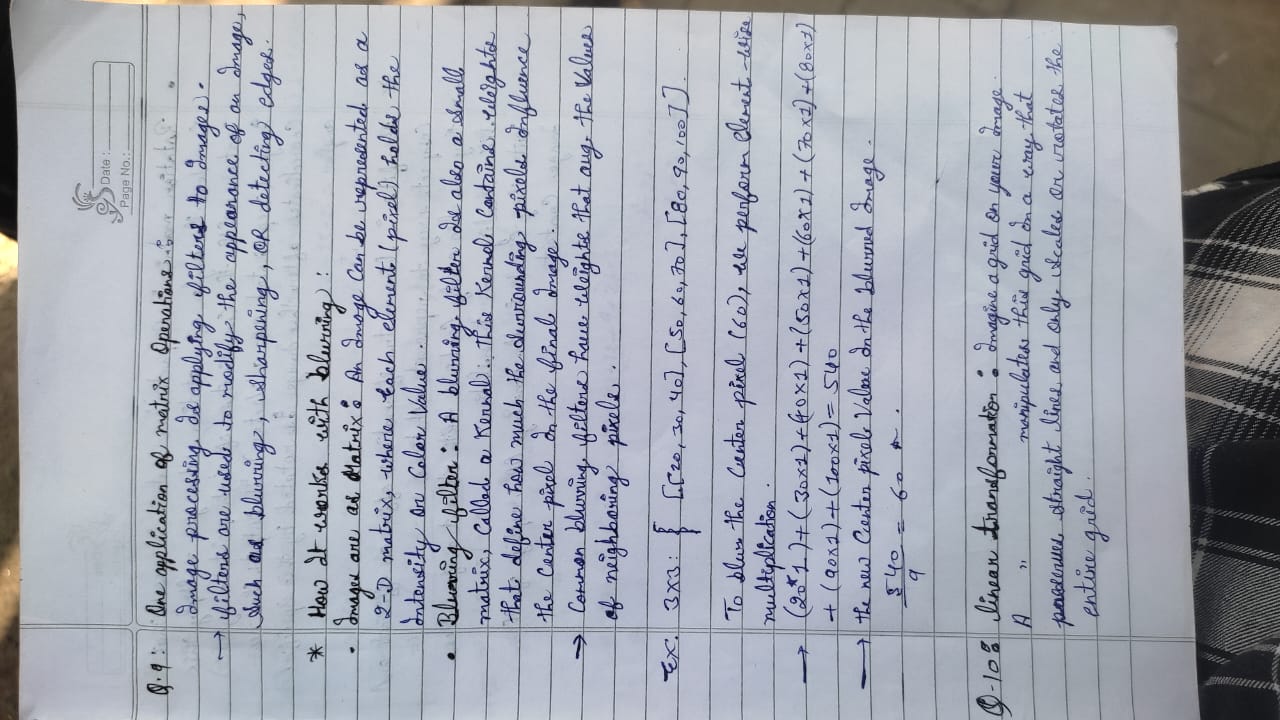 Date:
Page No.:
Q.9: One application of matrix Operations:
Image processing is applying filters to images.
→ filters are used to modify the appearance of an image,
Such as blurring, sharpening, OR detecting edges.
* How It works with blurring:
• Images are as Matrix: An image Can be represented as a
2-D matrix, where each element (pixel) holds the
intensity or Color Value.
• Blurring filter: A blurring filter is also a small
matrix, Called a Kernal. this Kernel Contains weights
that define how much the surrounding pixels influence
the Center pixel in the final image.
→ Common blurring filters have weights that aug. the Values
of neighboring pixels.
Ex: 3x3: { [[20, 30, 40], [50, 60, 70], [80, 90, 100]].
To blur the Center pixel (60), we perform element-wise
multiplication.
→ (20*1)+(30x1)+(40x1)+(50x1)+(60x1)+(70x1)+(80x1)
+ (90x1)+(100x1) = 540
→ the new Center pixels Value in the blurred image.
540/9 = 60
Q-10: linear transformation: Imagine a grid on your image.
A " manipulates this grid in a way that
preserves straight lines and only scales or rotates the
entire grid.